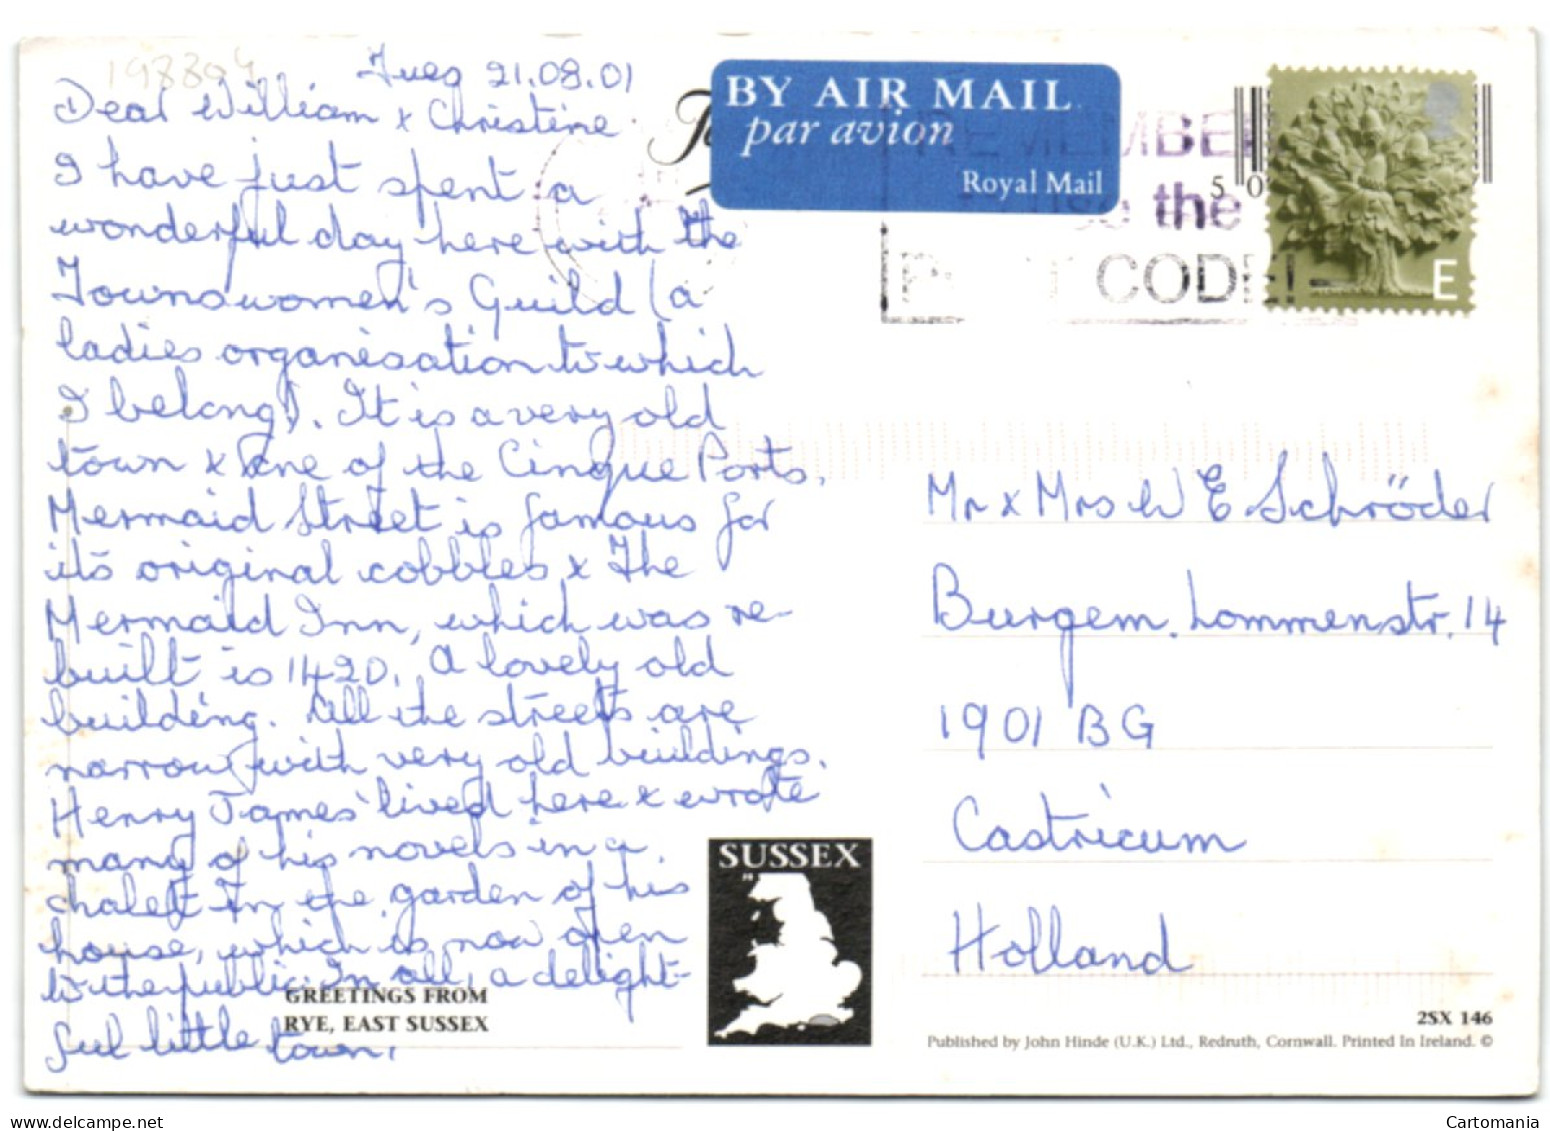 198304
Tues 21.08.01
Dear William & Christine
I have just spent a
wonderful day here with the
Townswomen's Guild (a
ladies organisation to which
I belong). It is a very old
town & one of the Cinque Ports.
Mermaid Street is famous for
its original cobbles & The
Mermaid Inn, which was re-
built is 1420. A lovely old
building. All the streets are
narrow with very old buildings.
Henry James lived here & wrote
many of his novels in a
chalet in the garden of his
house, which is now open
to the public. In all, a delight-
ful little town.
GREETINGS FROM
RYE, EAST SUSSEX
SUSSEX
BY AIR MAIL
par avion
Royal Mail
REMEMBER
the
CODE!
50
E
Mr & Mrs W E Schröder
Burgem. Lommenstr. 14
1901 BG
Castricum
Holland
2SX 146
Published by John Hinde (U.K.) Ltd., Redruth, Cornwall. Printed In Ireland. ©
Cartomania